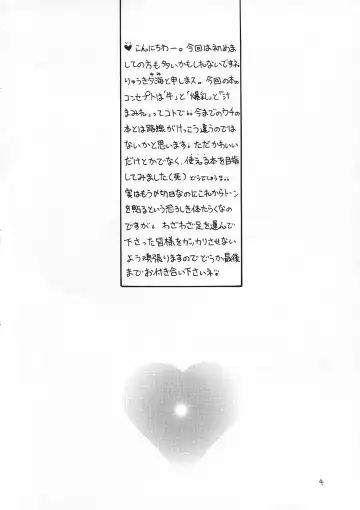 こんにちわー。今回は初めま
しての方も多いかもしれないですね
りゅうき夕海と申しまス。今回の本の
コンセプトは「牛」と「爆乳」と「汁
まみれ」ってコトで。今までのウチの
本とは路線がけっこう違うのでは
ないかと思います。ただかわいい
だけとかでなく、使える本を目指
してみました(死)どうでしょうな。
実はもうや切日なのにこれからトーン
を貼るという恐ろしき体たらくなの
ですが。わざわざ足を運んで
下さった皆様をガッカリさせない
よう頑張りますのでどうか最後
までお付き合い下さいネ
4